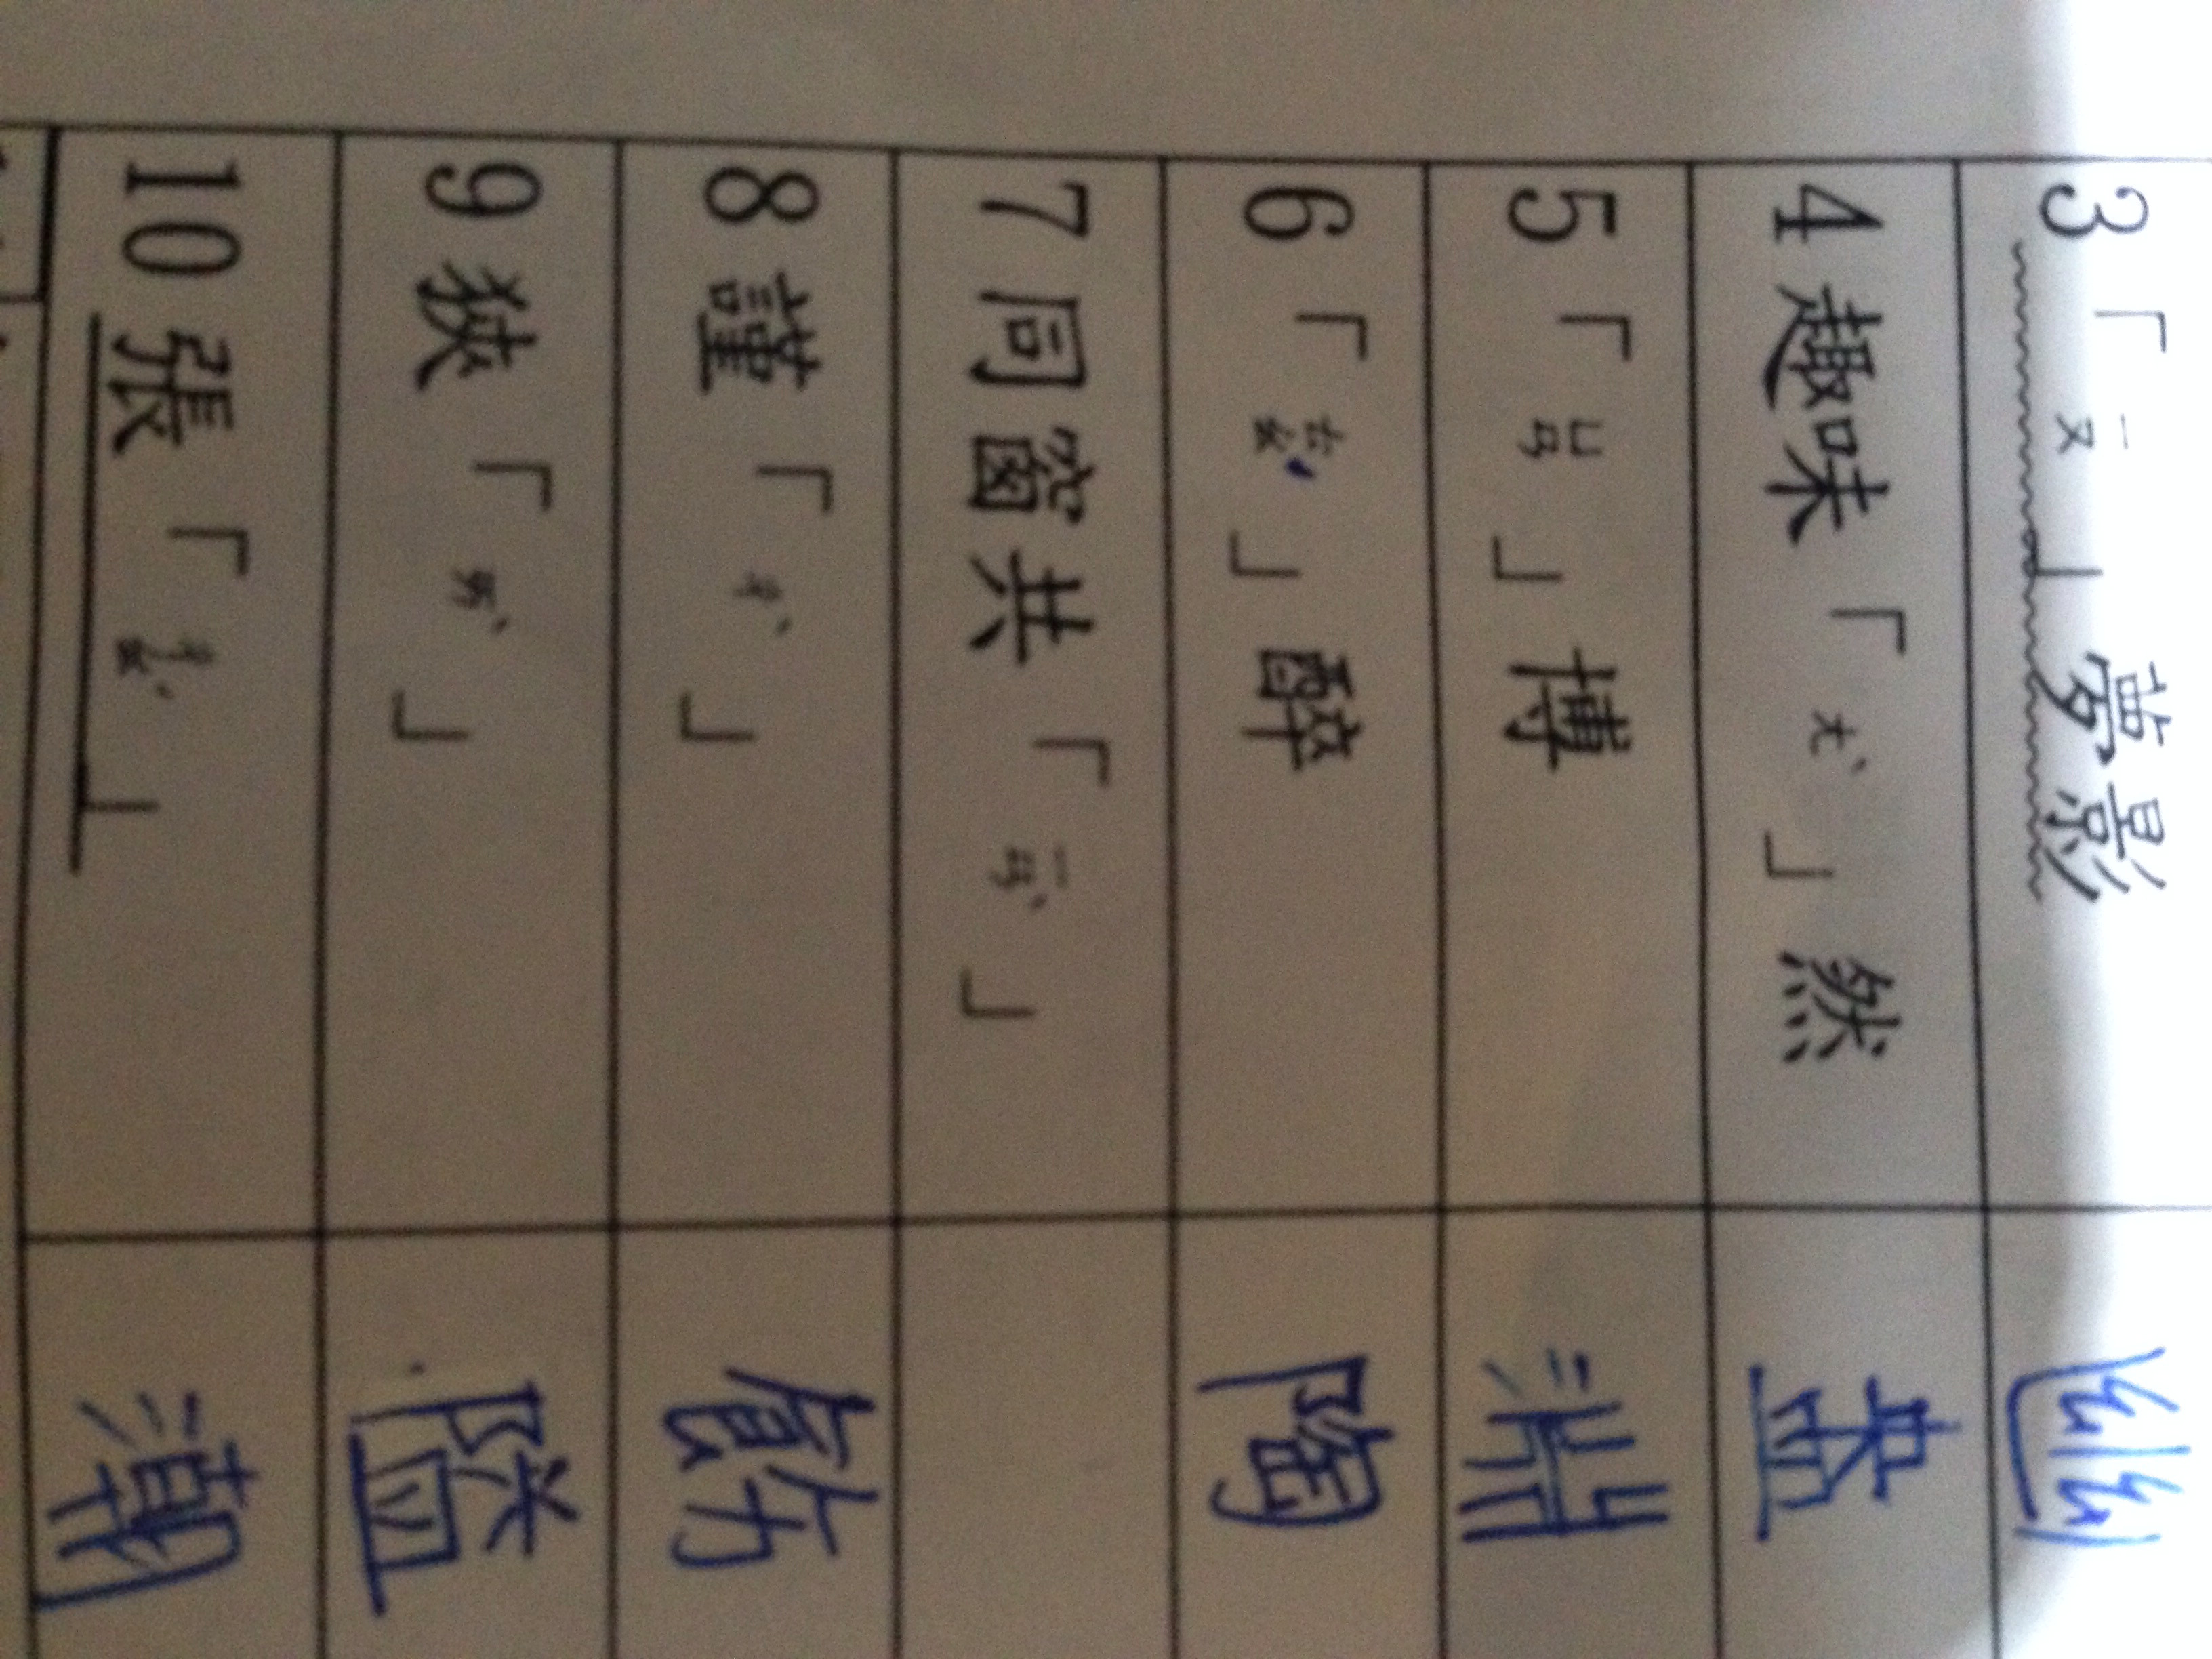 3「ㄧㄡ」夢影 幽
4 趣味「ㄤˋ」然 盎
5「ㄩㄢ」博 淵
6「ㄊㄠˊ」醉 陶
7 同窗共「ㄧㄢˋ」
8 謹「ㄔˋ」 飭
9 狹「ㄞˋ」 隘
10 張「ㄔㄠˊ」 潮